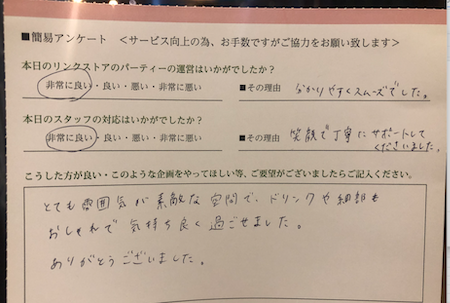 ■簡易アンケート　＜サービス向上の為、お手数ですがご協力をお願い致します＞
本日のリンクストアのパーティーの運営はいかがでしたか？
非常に良い・良い・悪い・非常に悪い　■その理由　分かりやすくスムーズでした。
本日のスタッフの対応はいかがでしたか？
非常に良い・良い・悪い・非常に悪い　■その理由　笑顔で丁寧にサポートして
くださいました。
こうした方が良い・このような企画をやってほしい等、ご要望がございましたらご記入ください。
とても雰囲気が素敵な空間で、ドリンクや細部も
おしゃれで気持ち良く過ごせました。
ありがとうございました。